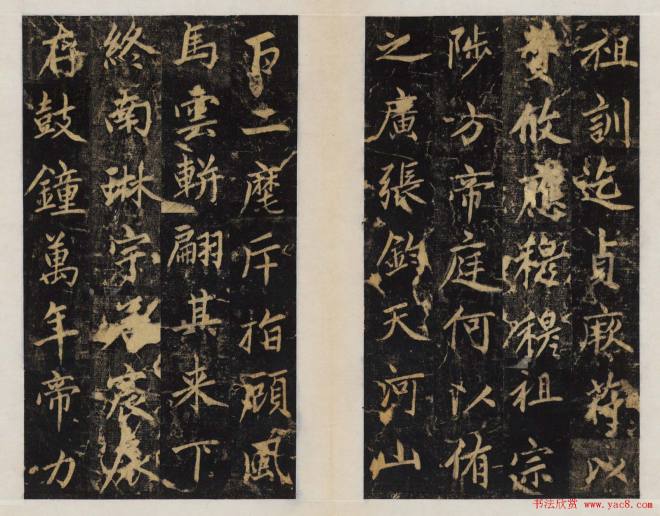 祖訓迄貞厥蒋以
攸應穆穆祖宗
陟方帝庭何以侑
之廣張鈞天河山
百二麾斥指顧風
馬雲輧翩其来下
終南琳宗
存鼓鐘萬年帝力
书法欣赏 www.yac8.com